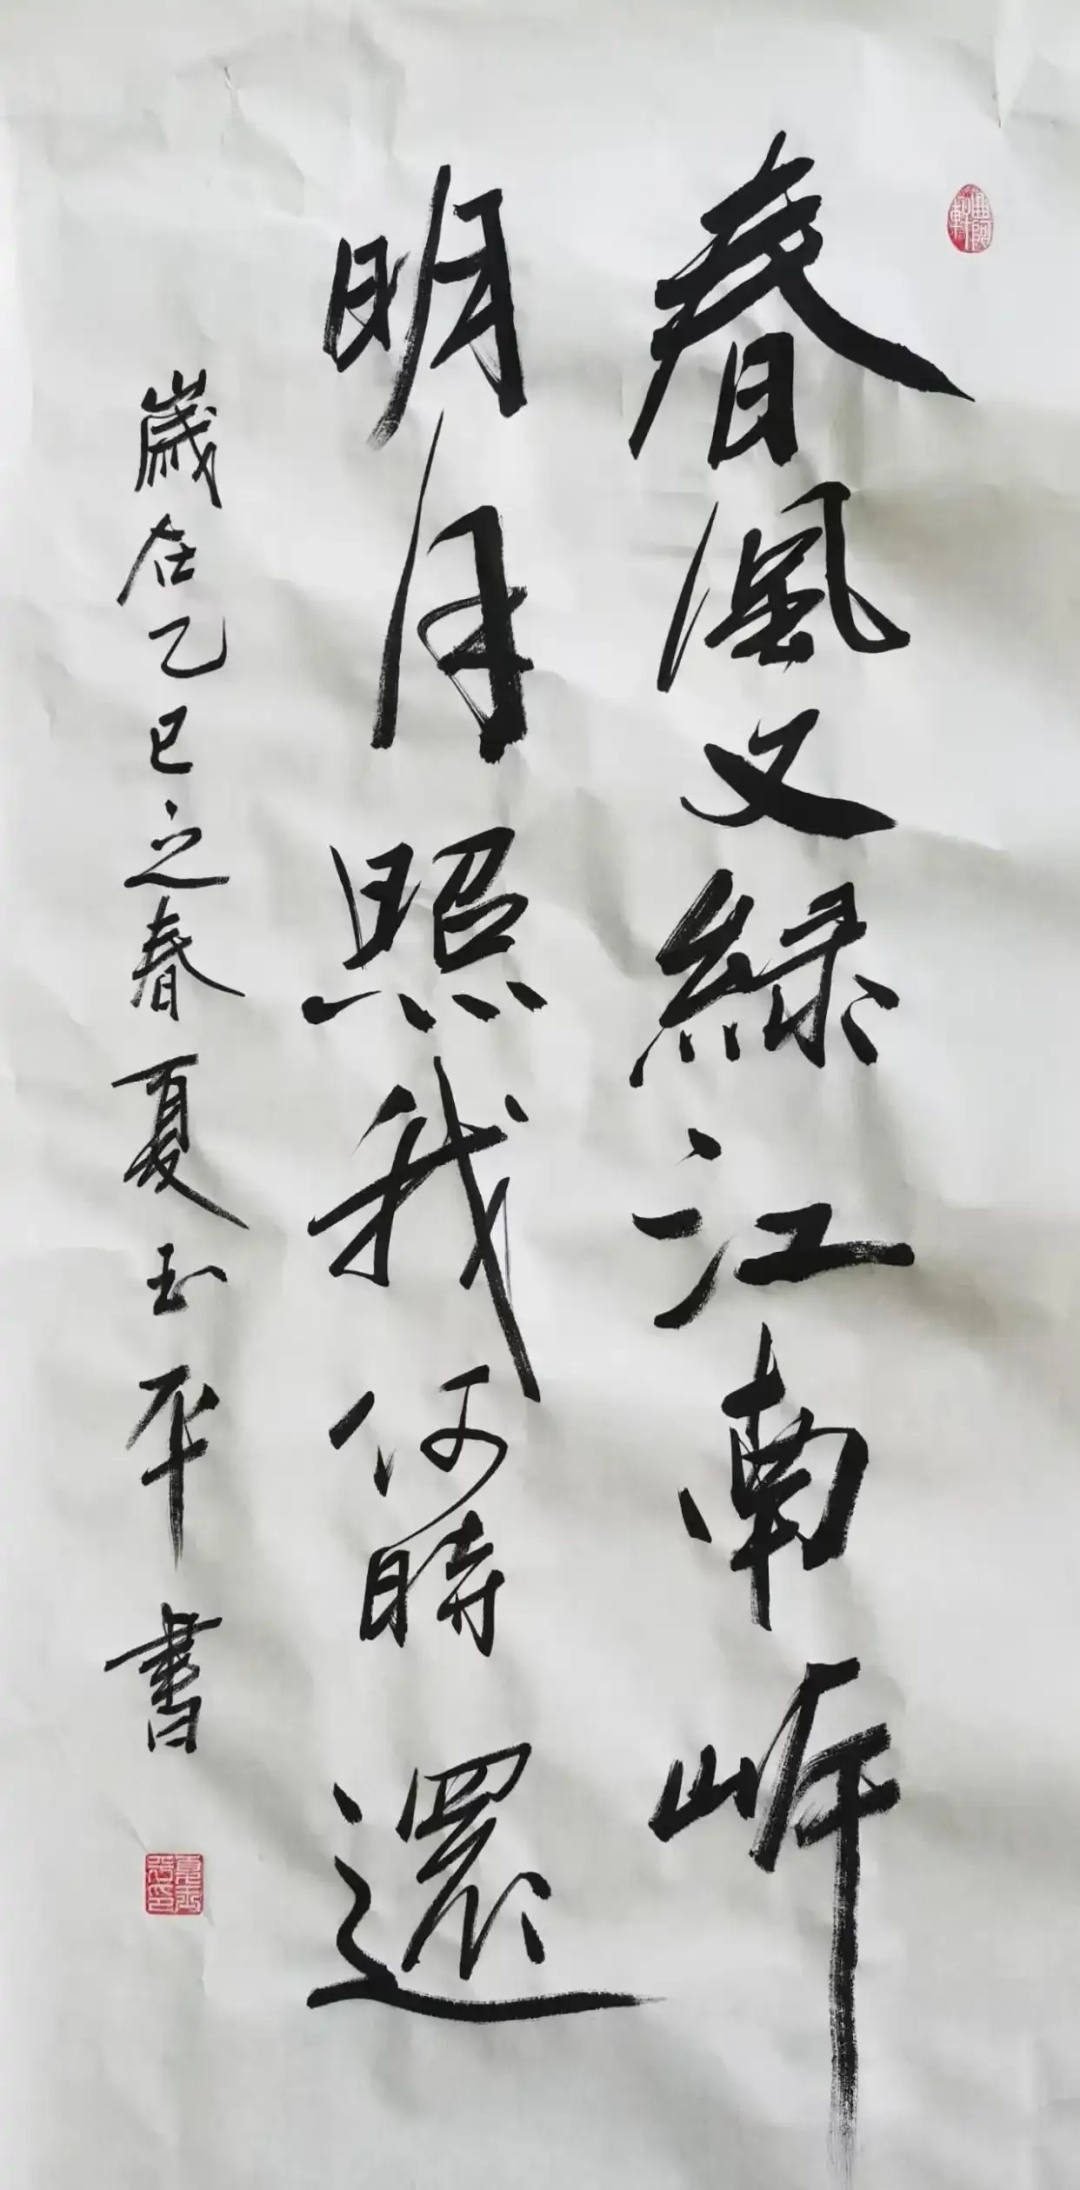 春風又綠江南岸
明月照我何時還
歲在乙巳之春夏玉平書